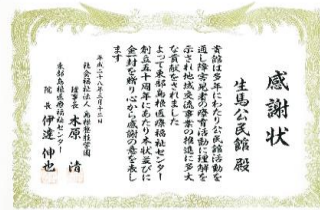 感謝状
生馬公民館 殿
貴館は多年にわたり公民館活動を
通し障害児者の療育活動に理解を
示され地域交流事業の推進に多大
な貢献をされました
よって東部島根医療福祉センター
創立五十周年にあたり本状並びに
金一封を贈り心から感謝の意を表し
ます
平成二十八年三月十二日
社会福祉法人 島根整肢学園
理事長 木原 清
東部島根医療福祉センター
院長 伊達 伸也